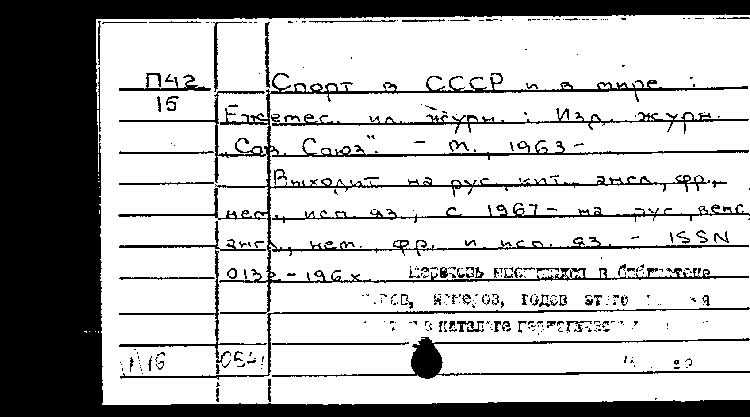 П42 Спорт в СССР и в мире :
15 Ежемес. ил. журн. : Изд. журн.
"Сов. Союз". - М., 1963-
Выходит на рус., кит., англ., фр.,
нем., исп. яз.; с 1967- на рус., венг.,
англ., нем., фр. и исп. яз. - ISSN
0132-196x Перечень имеющихся в библиотеке
номеров, годов этого
в каталоге